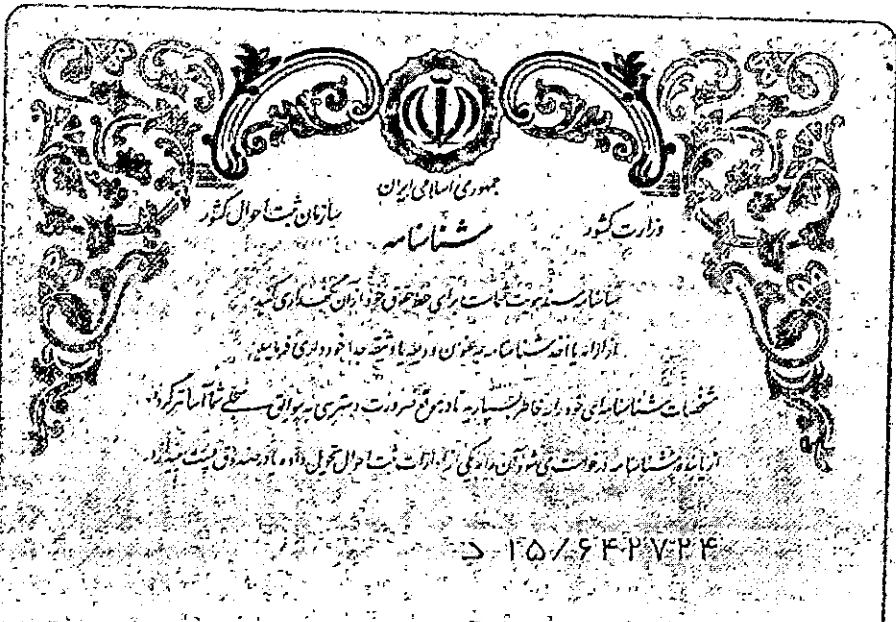 جمهوری اسلامی ایران
وزارت کشور
سازمان ثبت احوال کشور
شناسنامه
شناسنامه سند هویت شماست برای حفظ حقوق خود از آن نگهداری کنید
از ارائه یا اخذ شناسنامه به عنوان ودیعه یا وثیقه جدا خودداری فرمایید
مشخصات شناسنامه‌ای خود را به خاطر بسپارید تا در موقع ضرورت دسترسی به سوابق سجلی شما آسانتر گردد.
از یابنده شناسنامه درخواست می شود آن را به یکی از ادارات ثبت احوال تحویل داده یا در صندوق پست بیندازد.
د ۱۵/۶۴۲۷۲۴